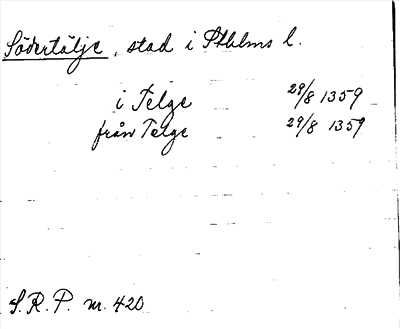 Södertälje, stad i Sthlms l.
i Telge 29/8 1359
från Telge 29/8 1359
S.R.P. nr. 420